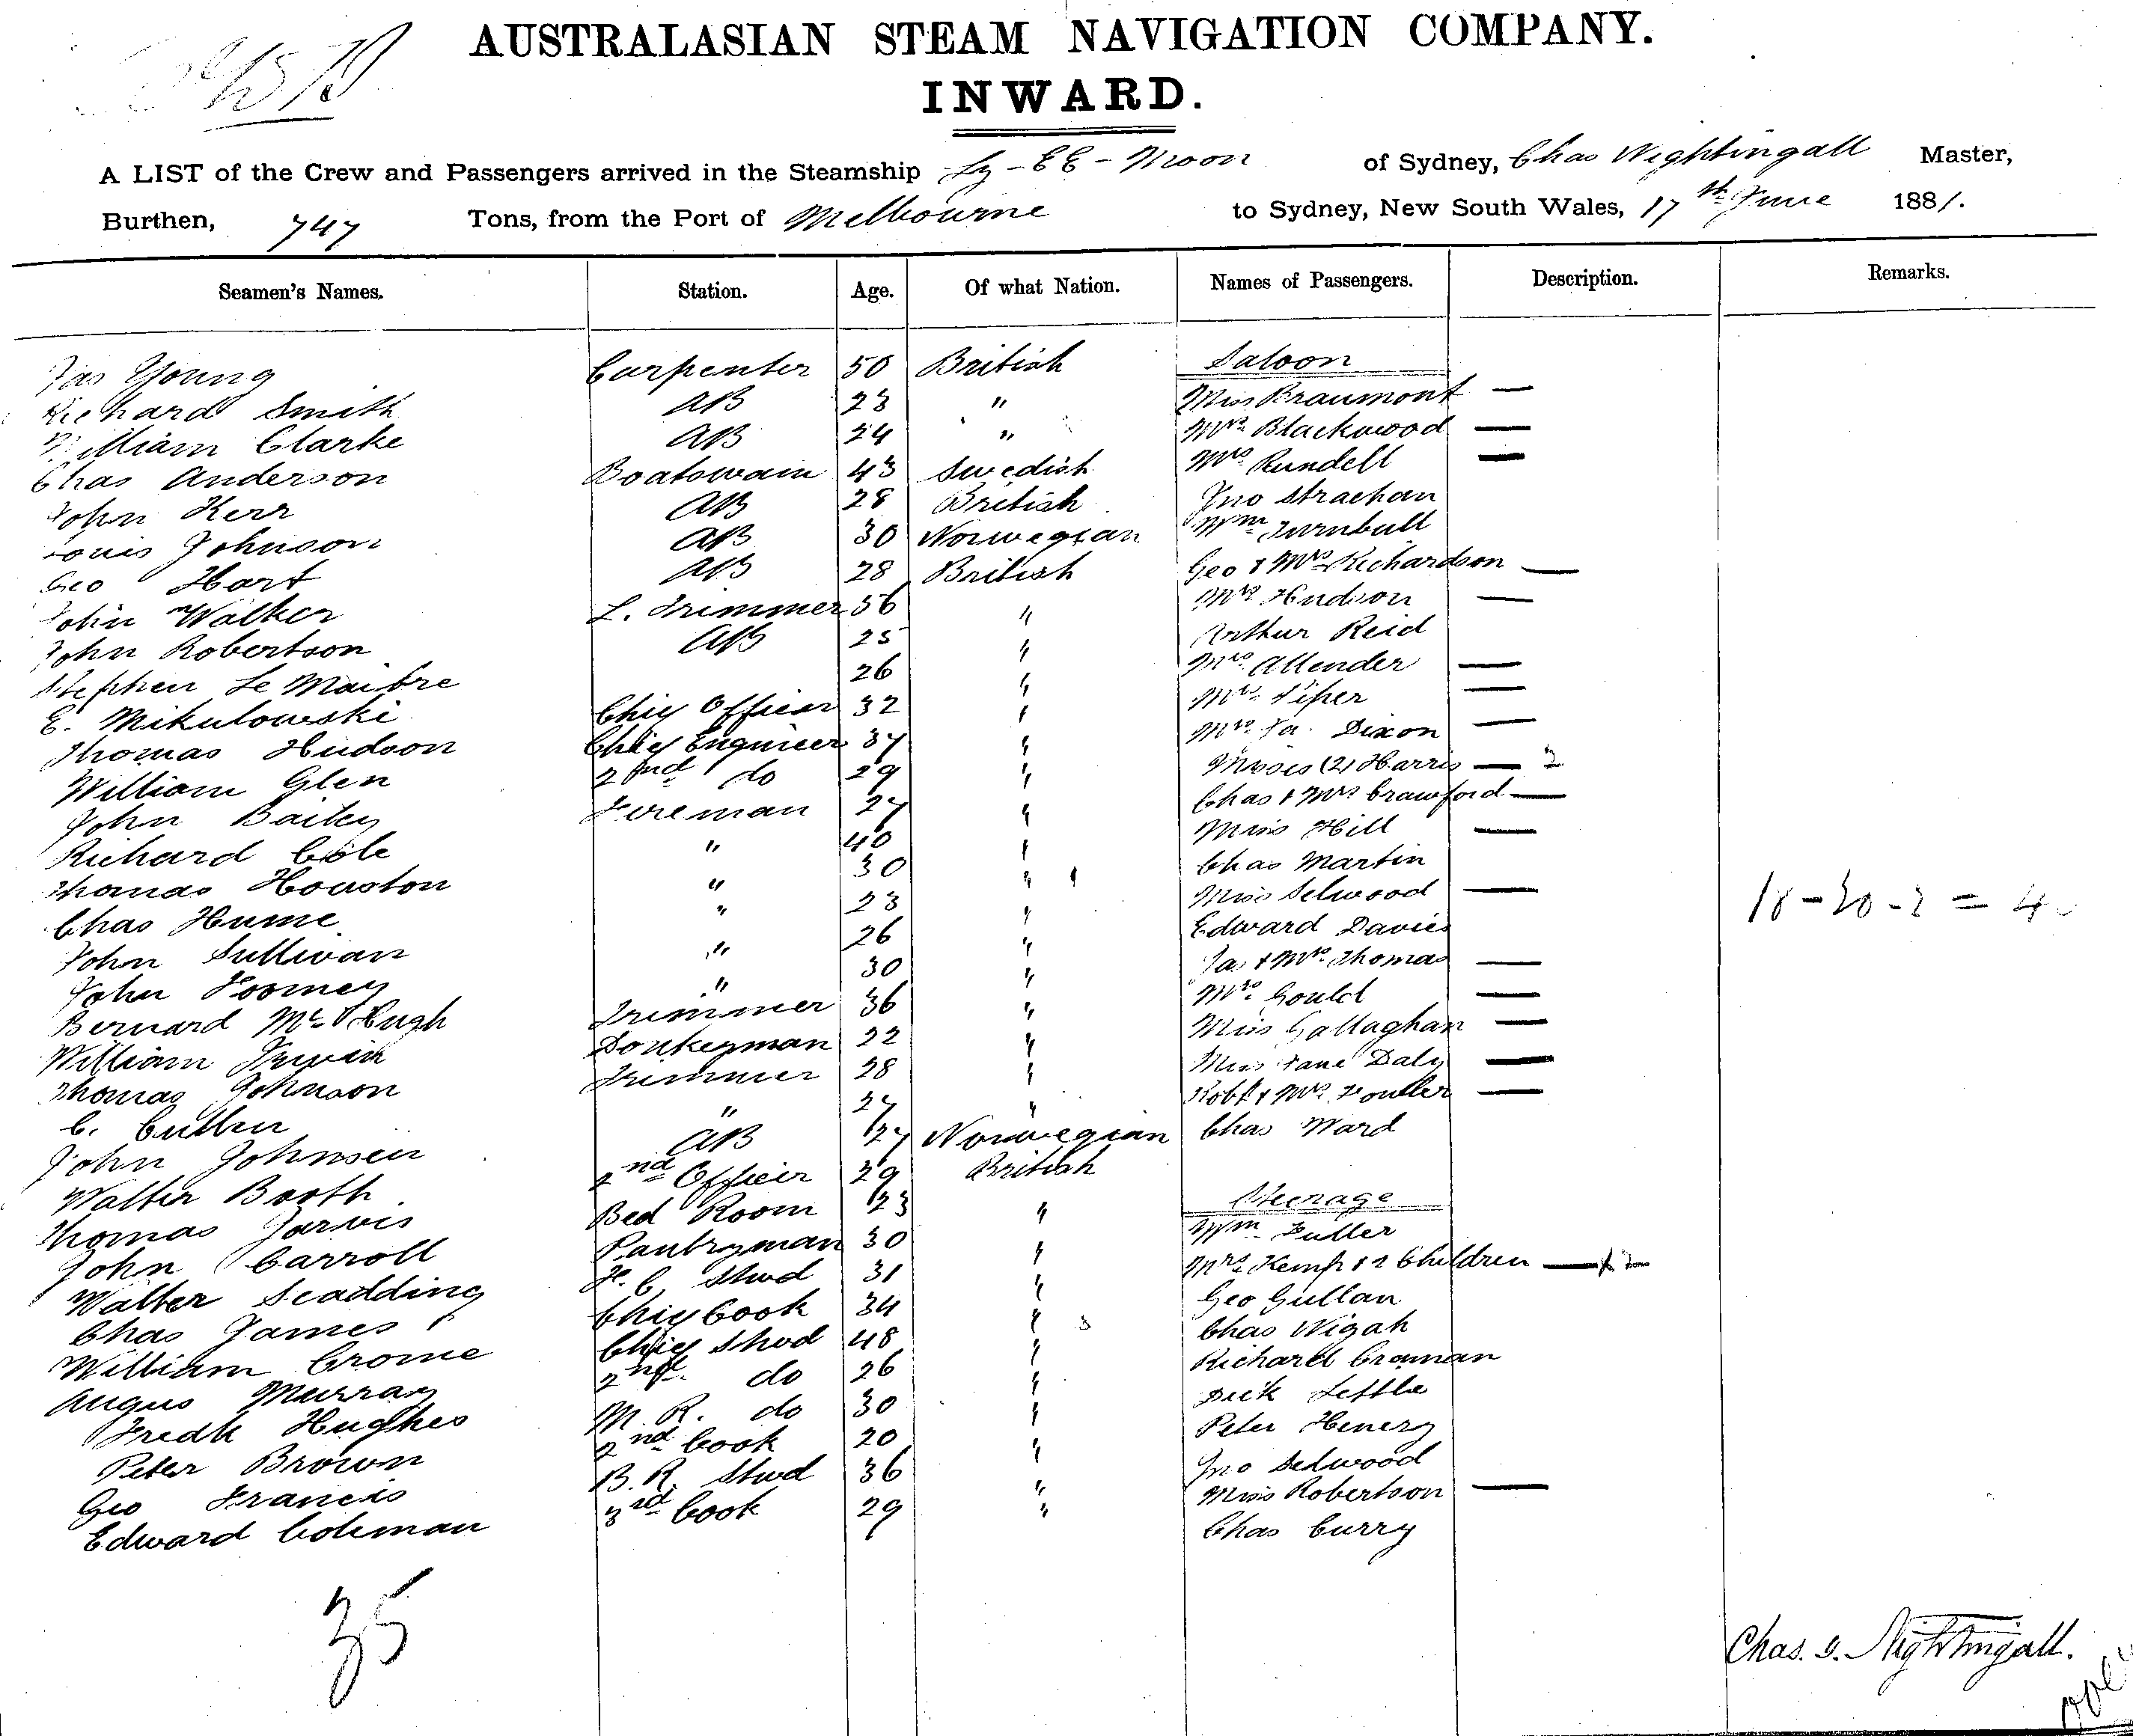 AUSTRALASIAN STEAM NAVIGATION COMPANY.
INWARD.
A LIST of the Crew and Passengers arrived in the Steamship Ly-EE-Moon of Sydney, Chas Nightingall Master,
Burthen, 747 Tons, from the Port of Melbourne to Sydney, New South Wales, 17th June 1881.
Seamen's Names. Station. Age. Of what Nation. Names of Passengers. Description. Remarks.
Jas Young Carpenter 50 British Saloon
Richard Smith AB 23 " Miss Braumont —
William Clarke AB 24 " Mrs Blackwood —
Chas Anderson Boatswain 43 Swedish Mrs Rundell —
John Kerr AB 28 British Jno Strachan
Louis Johnson AB 30 Norwegian Wm Turnbull
Geo Hart AB 28 British Geo & Mrs Richardson —
John Walker L. Trimmer 56 " Mrs Hudson —
John Robertson AB 25 " Arthur Reid
Stephen Le Maitre 26 " Mrs Allender —
E. Mikulowski Chief Officer 32 " Mrs Piper —
Thomas Hudson Chief Engineer 37 " Mrs Dixon —
William Glen 2nd do 29 " Misses (2) Harris — 2
John Bailey Fireman 27 " Chas & Mrs Crawford —
Richard Cole " 40 " Miss Hill —
Thomas Houston 30 " Chas Martin
Chas Hume " 23 " Miss Selwood — 18-20-2 = 40
John Sullivan " 26 " Edward Davies
John Toomey " 30 " Jas & Mrs Thomas —
Bernard McHugh Trimmer 36 " Mrs Gould —
William Irwin Donkeyman 22 " Miss Gallaghan —
Thomas Johnson Trimmer 28 " Miss Jane Daly —
C. Cullen " 27 " Robt & Mrs Fowler —
John Johnsen AB 27 Norwegian Chas Ward
Walter Booth 2nd Officer 29 British
Thomas Jarvis Bed Room 23 " Steerage
John Carroll Pantryman 30 " Wm Fuller
Walter Scadding F.C. Stwd 31 " Mrs Kemp & 2 Children —
Chas James Chief Cook 34 " Geo Gullan
William Crome Chief Stwd 48 " Chas Wigah
Angus Murray 2nd do 26 " Richard Craman
Fredk Hughes M.R. do 30 " Dick Settle
Peter Brown 2nd Cook 20 " Peter Henery
Geo Francis B.R. Stwd 36 " Jno Selwood
Edward Coleman 3rd Cook 29 " Miss Robertson —
Chas Curry
35
Chas. S. Nightingall.